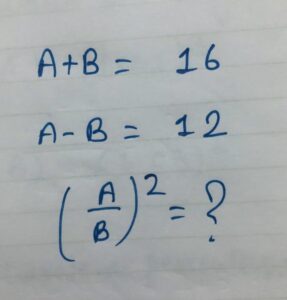 A+B = 16
A-B = 12
(A/B)² = ?